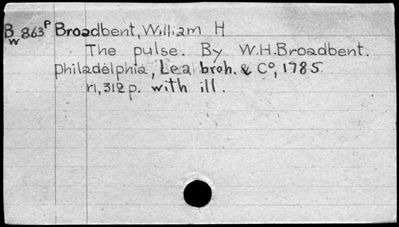 B 863P Broadbent, William H
w
The pulse. By W.H.Broadbent.
Philadelphia, Lea broh. & Co, 1785
r1, 312 p. with ill.